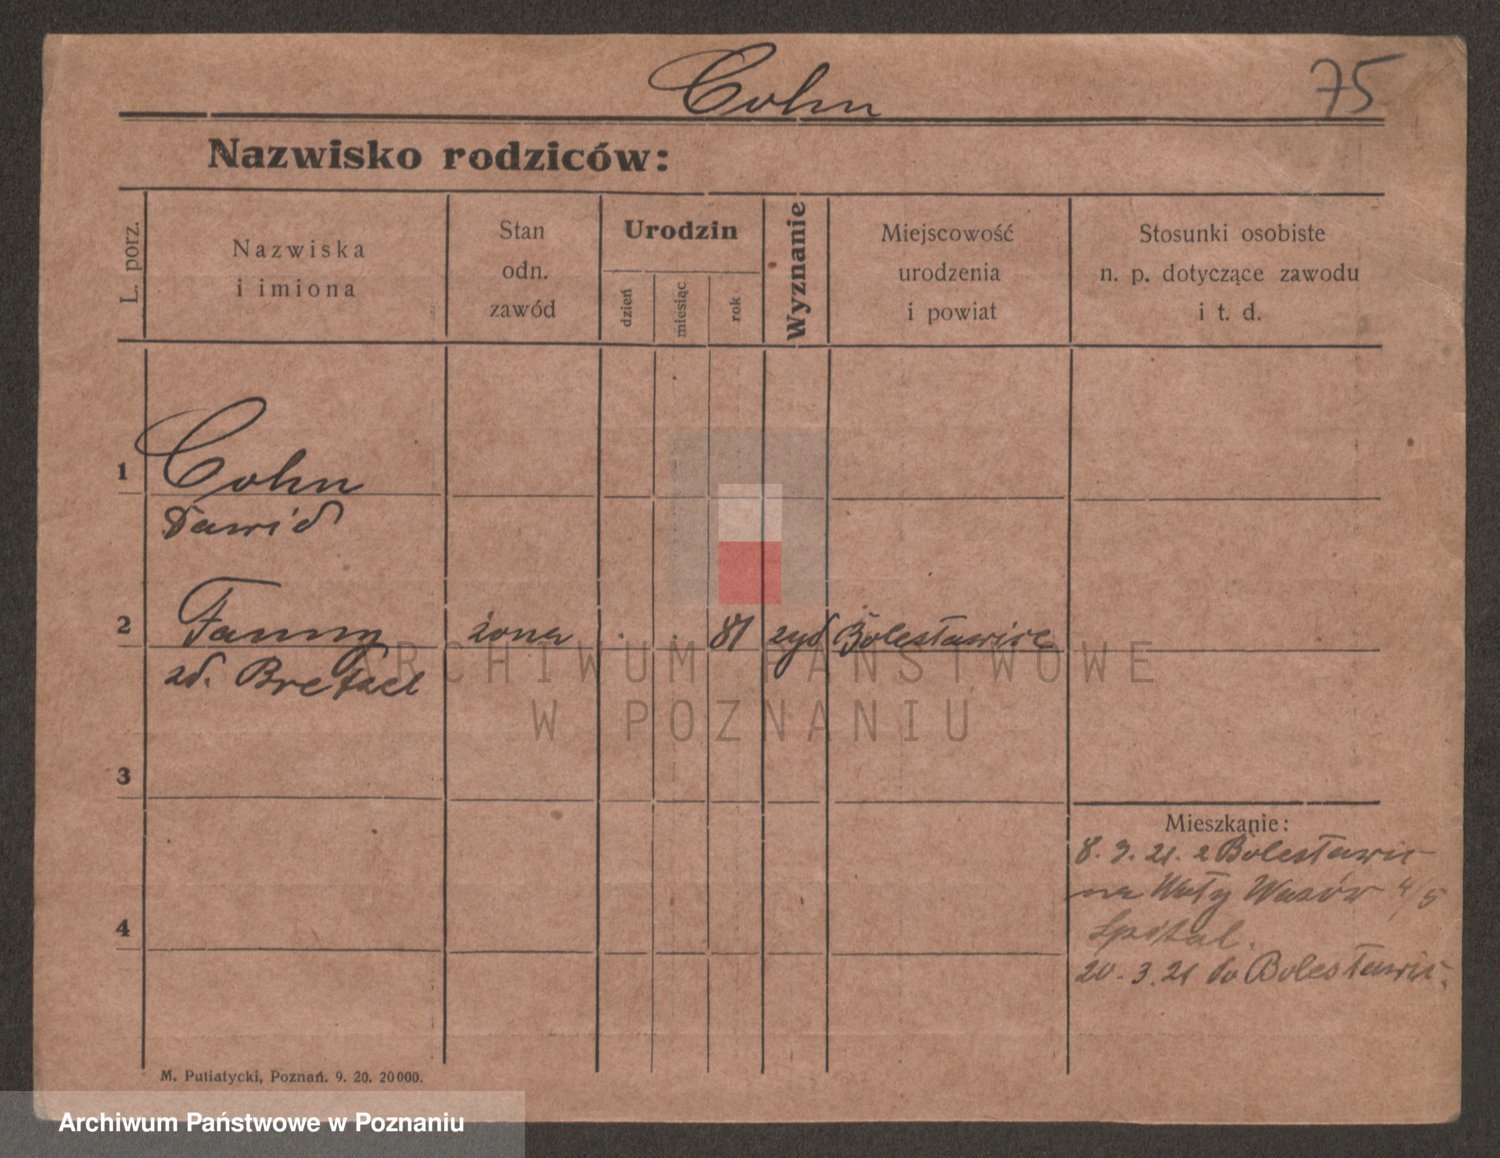 Cohn
75
Nazwisko rodziców:
L. porz.
Nazwiska
i imiona
Stan
odn.
zawód
Urodzin
dzień
miesiąc
rok
Wyznanie
Miejscowość
urodzenia
i powiat
Stosunki osobiste
n. p. dotyczące zawodu
i t. d.
1
Cohn
Dawid
2 Fanny żona . . 81 żyd Bolesławice
zd.
3
Mieszkanie:
8. 3. 21. z Bolesławic
na Wały Wazów 4/5
Spital.
4
20. 3. 21 do Bolesławic.
M. Putiatycki, Poznań. 9. 20. 20000.
ARCHIWUM PAŃSTWOWE
W POZNANIU
Archiwum Państwowe w Poznaniu